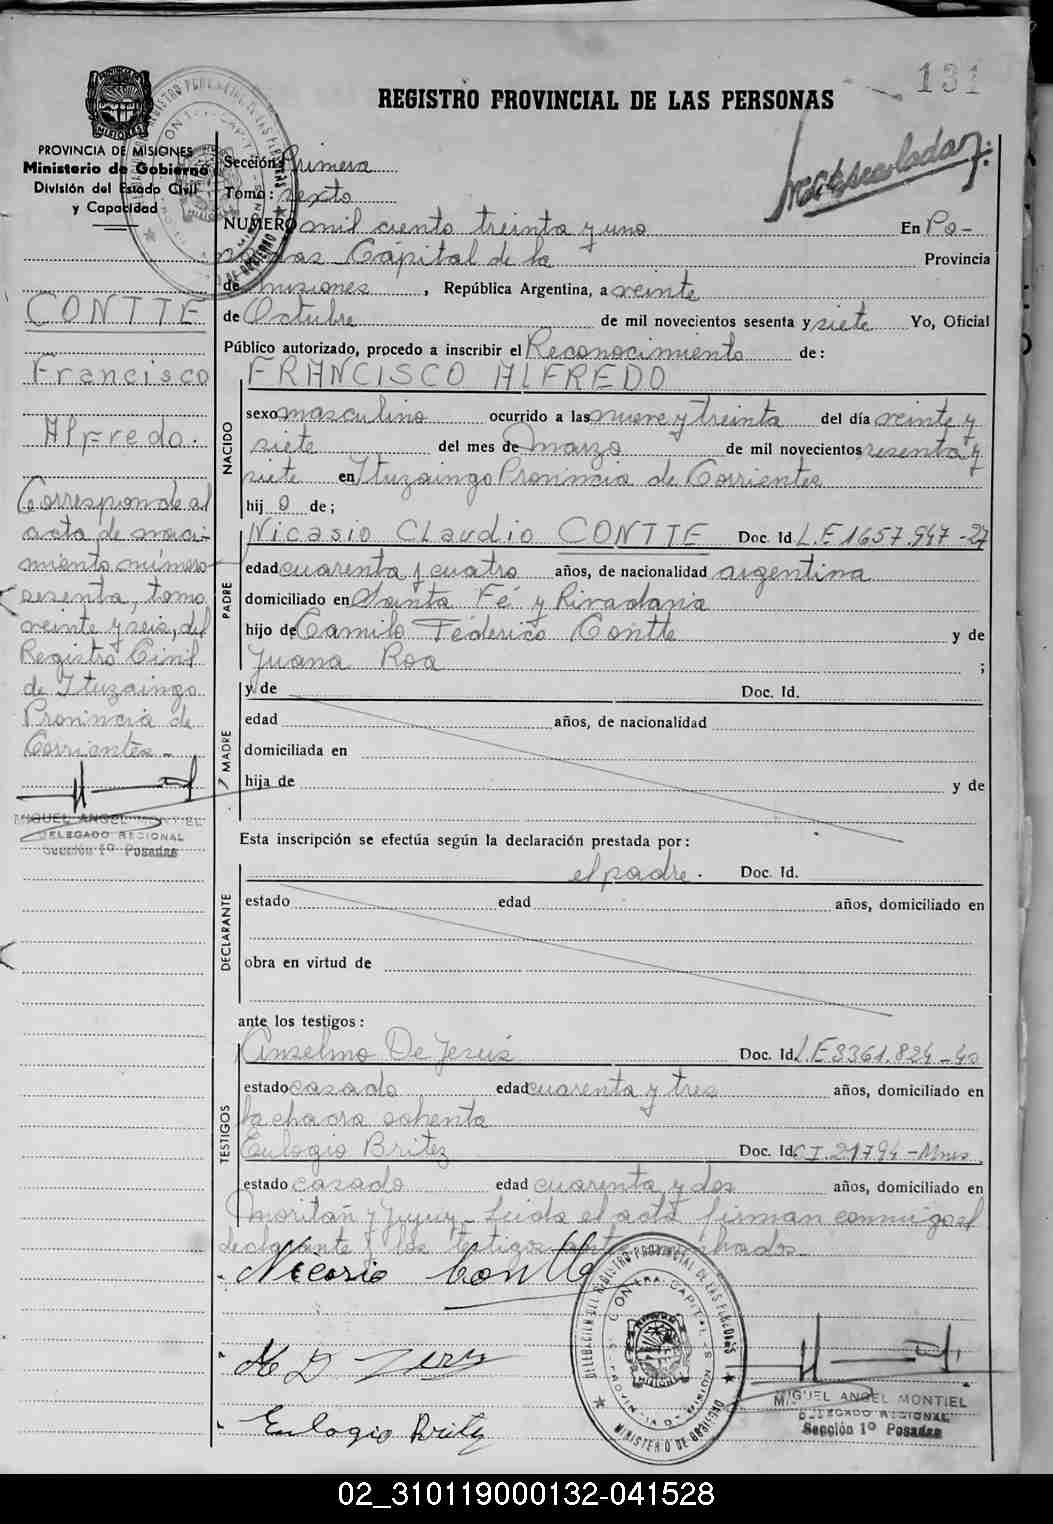 131
REGISTRO PROVINCIAL DE LAS PERSONAS
PROVINCIA DE MISIONES
Ministerio de Gobierno
División del Estado Civil
y Capacidad
CONTTE
Francisco
Alfredo.
Corresponde al
acta de naci-
miento número
sesenta, tomo
veinte y seis, del
Registro Civil
de Ituzaingo
Provincia de
Corrientes -
MIGUEL ANGEL MONTIEL
DELEGADO REGIONAL
Sección 1º Posadas
Sección Primera
Tomo: sexto
NUMERO mil ciento treinta y uno En Po-
sadas Capital de la Provincia
de Misiones, República Argentina, a veinte
de Octubre de mil novecientos sesenta y siete Yo, Oficial
Público autorizado, procedo a inscribir el Reconocimiento de:
NACIDO
FRANCISCO ALFREDO
sexo masculino ocurrido a las nueve y treinta del día veinte y
siete del mes de marzo de mil novecientos sesenta y
siete en Ituzaingo Provincia de Corrientes
hij o de;
PADRE
Nicasio Claudio CONTTE Doc. Id. L.E 1657.947-27
edad cuarenta y cuatro años, de nacionalidad argentina
domiciliado en Santa Fé y Rivadavia
hijo de Camilo Féderico Contte y de
Juana Roa ;
MADRE
y de Doc. Id.
edad años, de nacionalidad
domiciliada en
hija de y de
Esta inscripción se efectúa según la declaración prestada por:
DECLARANTE
el padre. Doc. Id.
estado edad años, domiciliado en
obra en virtud de
ante los testigos:
TESTIGOS
Anselmo De Jesús Doc. Id. L.E 3361.824-40
estado casado edad cuarenta y tres años, domiciliado en
la chacra ochenta
Eulogio Britez Doc. Id. C.I.21794-Mnes.
estado casado edad cuarenta y dos años, domiciliado en
y Jujuy - Leida el acta firman conmigo el
declarante y los testigos
Nicasio Contte
Eulogio Britez
DELEGACION DEL REGISTRO PROVINCIAL DE LAS PERSONAS
MINISTERIO DE GOBIERNO
MIGUEL ANGEL MONTIEL
DELEGADO REGIONAL
Sección 1º Posadas
02_310119000132-041528